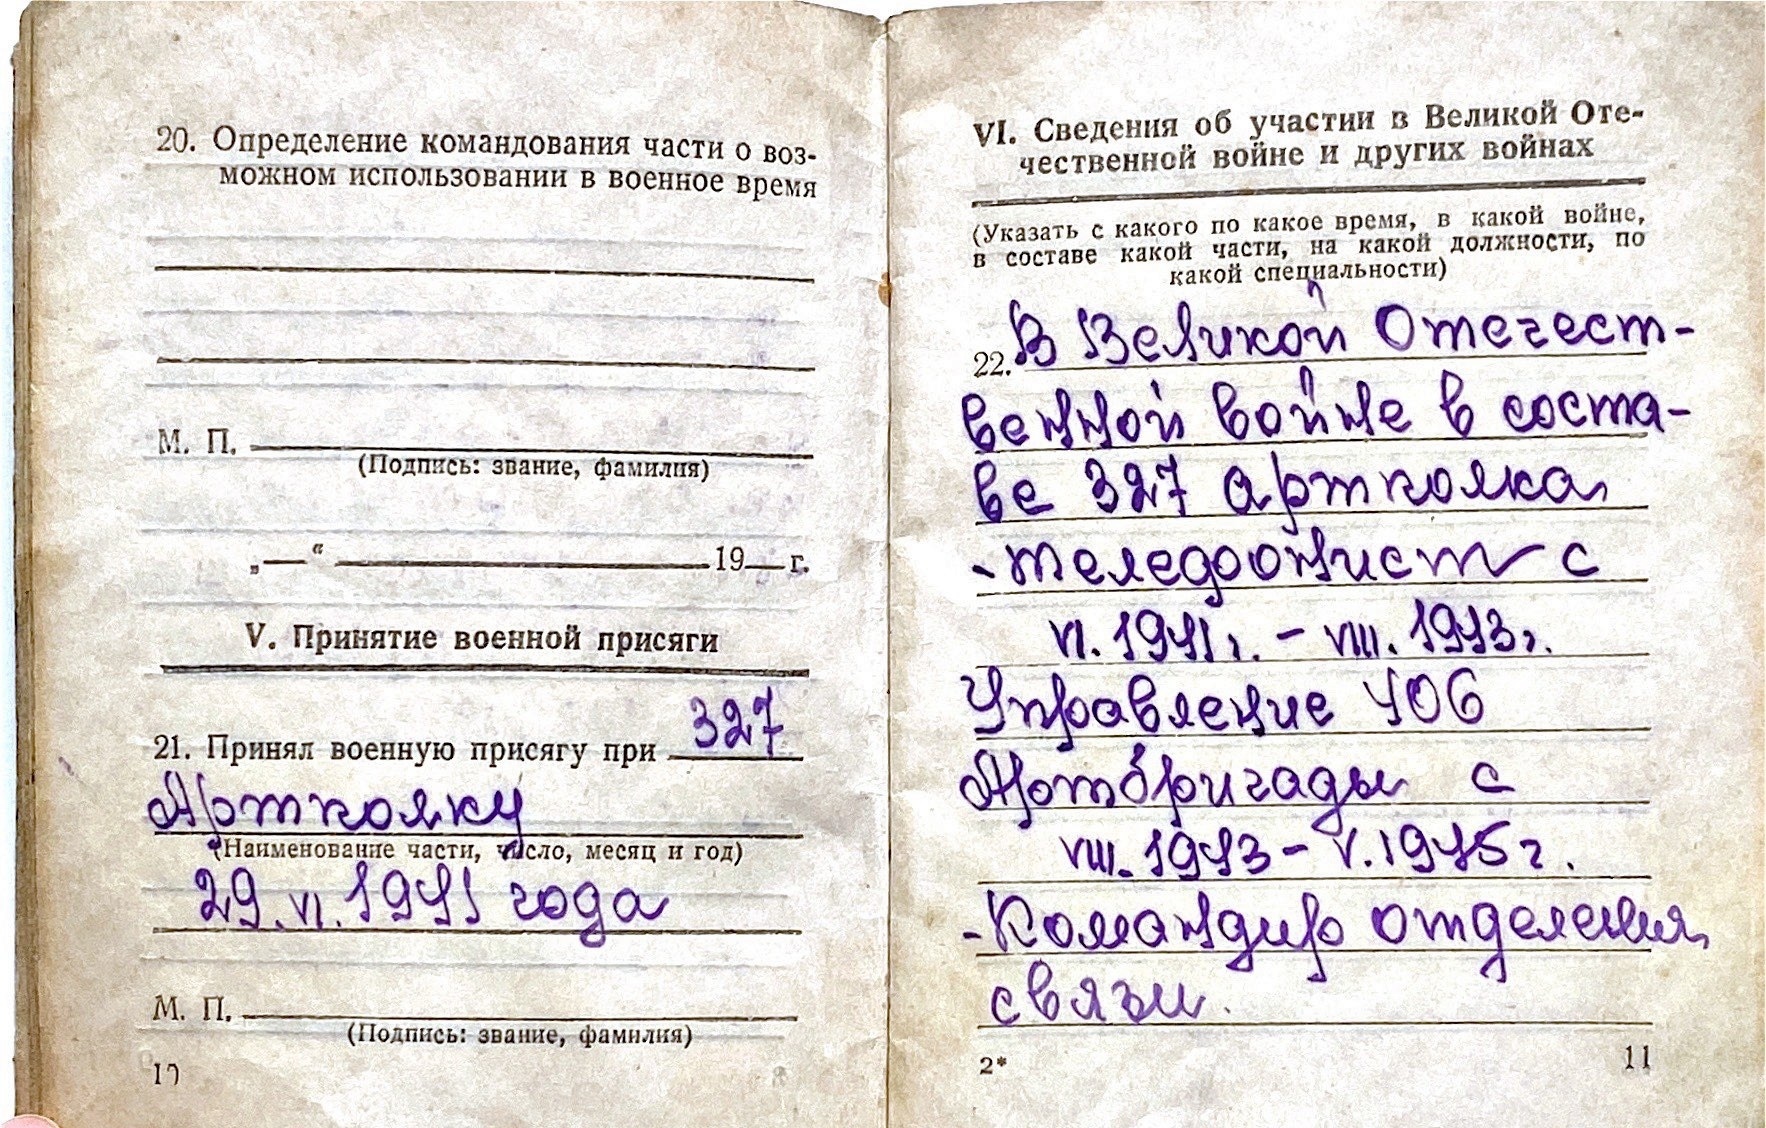 20. Определение командования части о воз-
можном использовании в военное время
М. П.
(Подпись: звание, фамилия)
„—“ 19 г.
V. Принятие военной присяги
21. Принял военную присягу при 327
Артполку
(Наименование части, число, месяц и год)
29.VI.1941 года
М. П.
(Подпись: звание, фамилия)
10
VI. Сведения об участии в Великой Оте-
чественной войне и других войнах
(Указать с какого по какое время, в какой войне,
в составе какой части, на какой должности, по
какой специальности)
22. В Великой Отечест-
венной войне в соста-
ве 327 артполка
- телефонист с
VI.1941г. – VIII.1943г.
Управление 406
Артбригады с
VIII.1943 – V.1945г.
- Командир отделения
связи.
2*
11